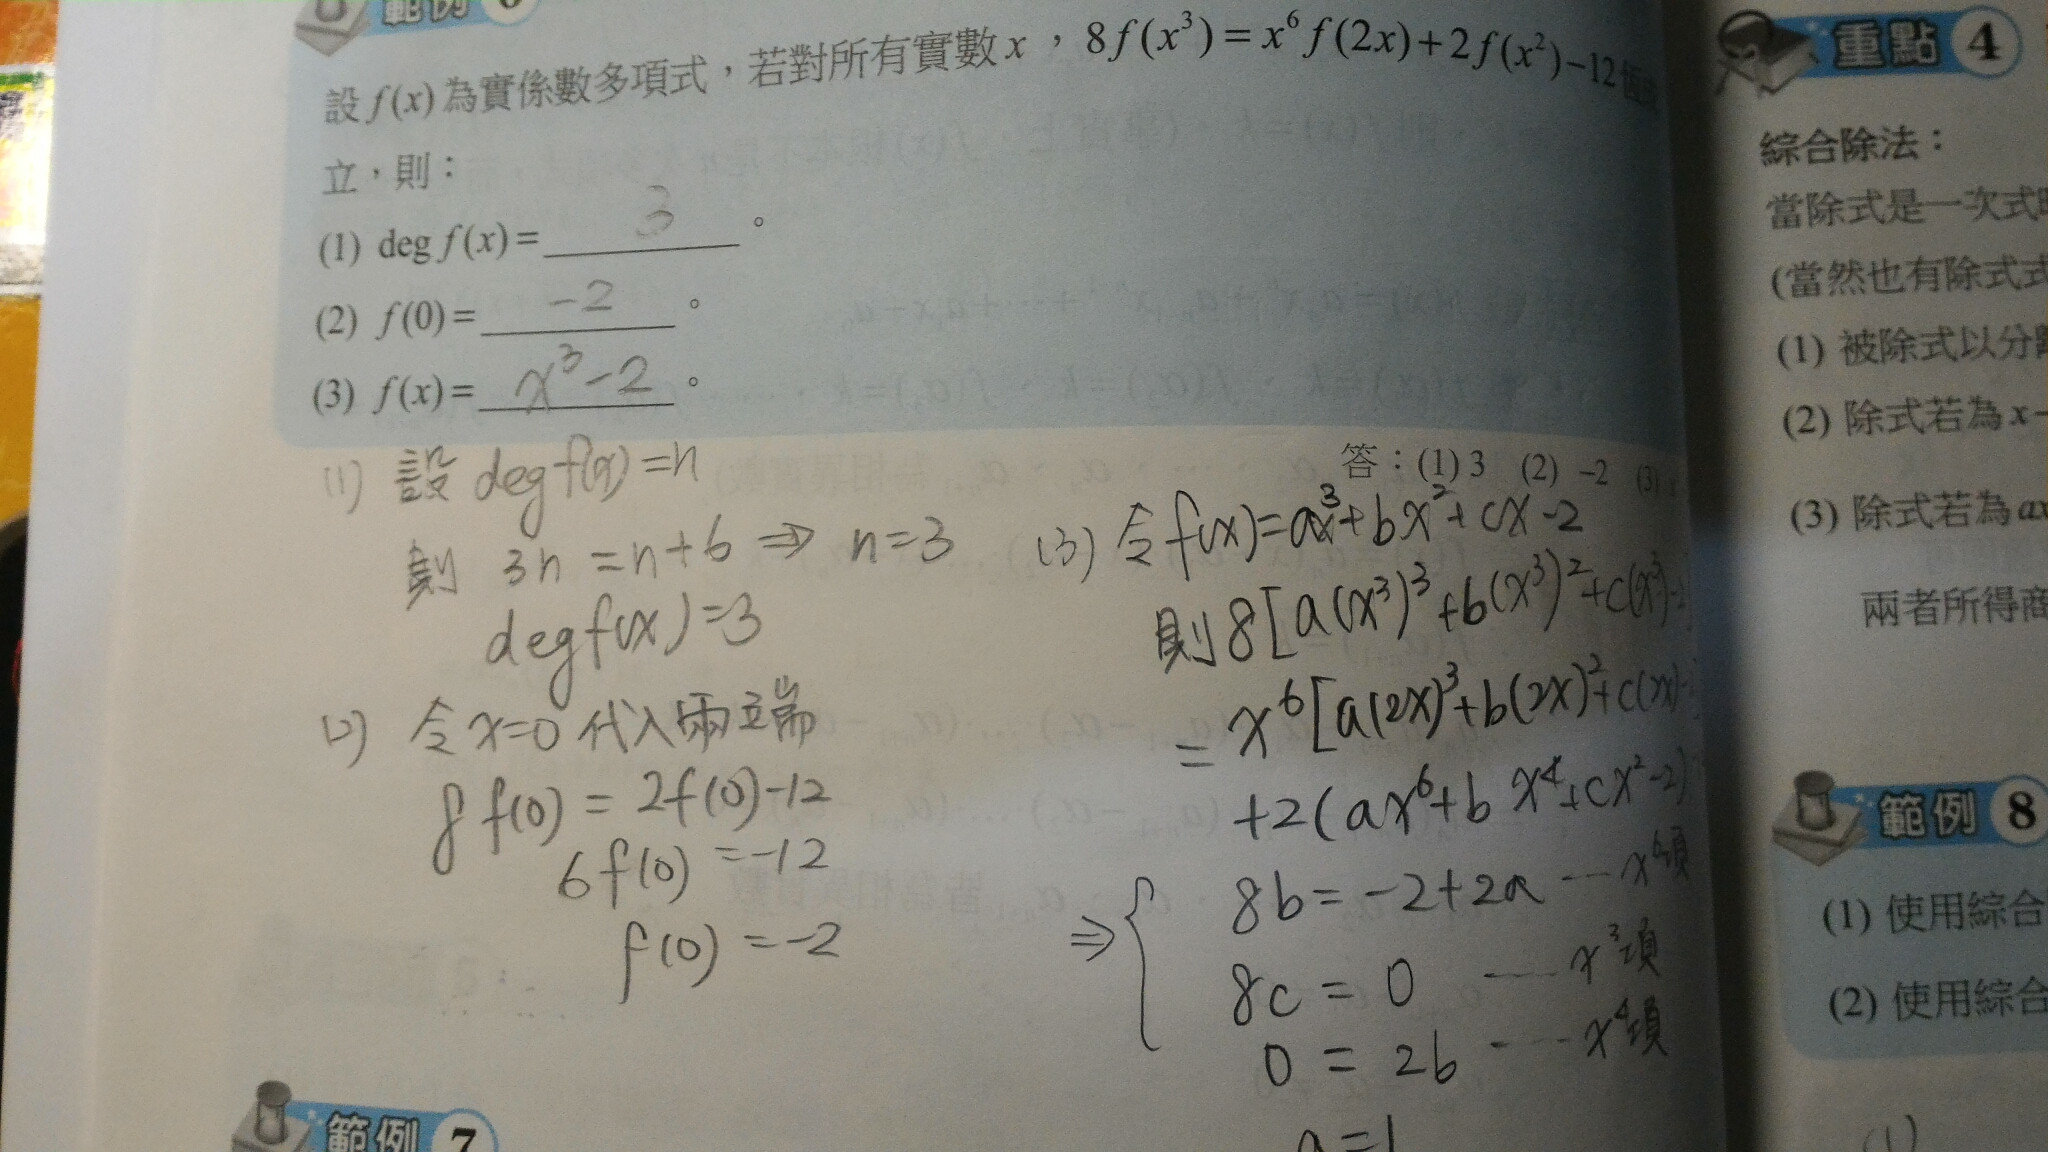 範例 6
設 f(x) 為實係數多項式，若對所有實數 x ， 8f(x³)=x⁶f(2x)+2f(x²)−12 恆成
立，則：
(1) deg f(x)= 3 。
(2) f(0)= -2 。
(3) f(x)= x³-2 。
答：(1) 3 (2) −2 (3) x
(1) 設 deg f(x)=n
則 3n = n+6 ⇒ n=3
deg f(x)=3
(2) 令 x=0 代入兩端
8f(0) = 2f(0)-12
6f(0) = -12
f(0) = -2
(3) 令 f(x)=ax³+bx²+cx-2
則 8[a(x³)³+b(x³)²+c(x³)-2]
= x⁶[a(2x)³+b(2x)²+c(2x)-
+2(ax⁶+bx⁴+cx²-2)
⇒ { 8b = -2+2a --- x⁶項
8c = 0 --- x³項
0 = 2b --- x⁴項
a=1
範例 7
重點 4
綜合除法：
當除式是一次式時
(當然也有除式式
(1) 被除式以分離
(2) 除式若為 x−
(3) 除式若為 ax
兩者所得商
範例 8
(1) 使用綜合
(2) 使用綜合
(1)